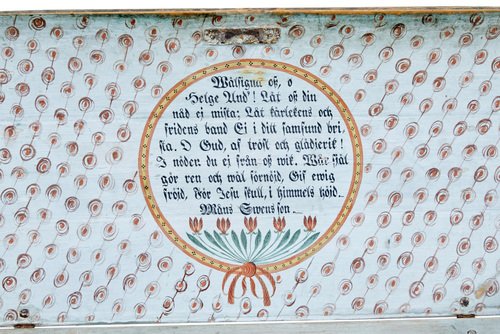 Wälsigna oß, o
Helge And'! Låt oß din
nåd ei mista; Låt kärlekens och
fridens band Ei i ditt samfund bri-
sta. O Gud, af tröst och glädie rik!
I nöden du ei från oß wik. Wår själ
gör ren och wäl förnöid, Gif ewig
fröid, För Jesu skull, i himmels höid.
Måns Swensson.